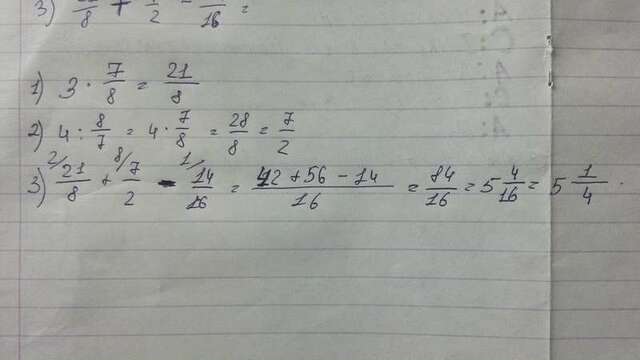 3) /8 + /2 - /16 =
1) 3 · 7/8 = 21/8
2) 4 : 8/7 = 4 · 7/8 = 28/8 = 7/2
3) 2/ 21/8 + 8/ 7/2 - 1/ 14/16 = (42 + 56 - 14)/16 = 84/16 = 5 4/16 = 5 1/4 .